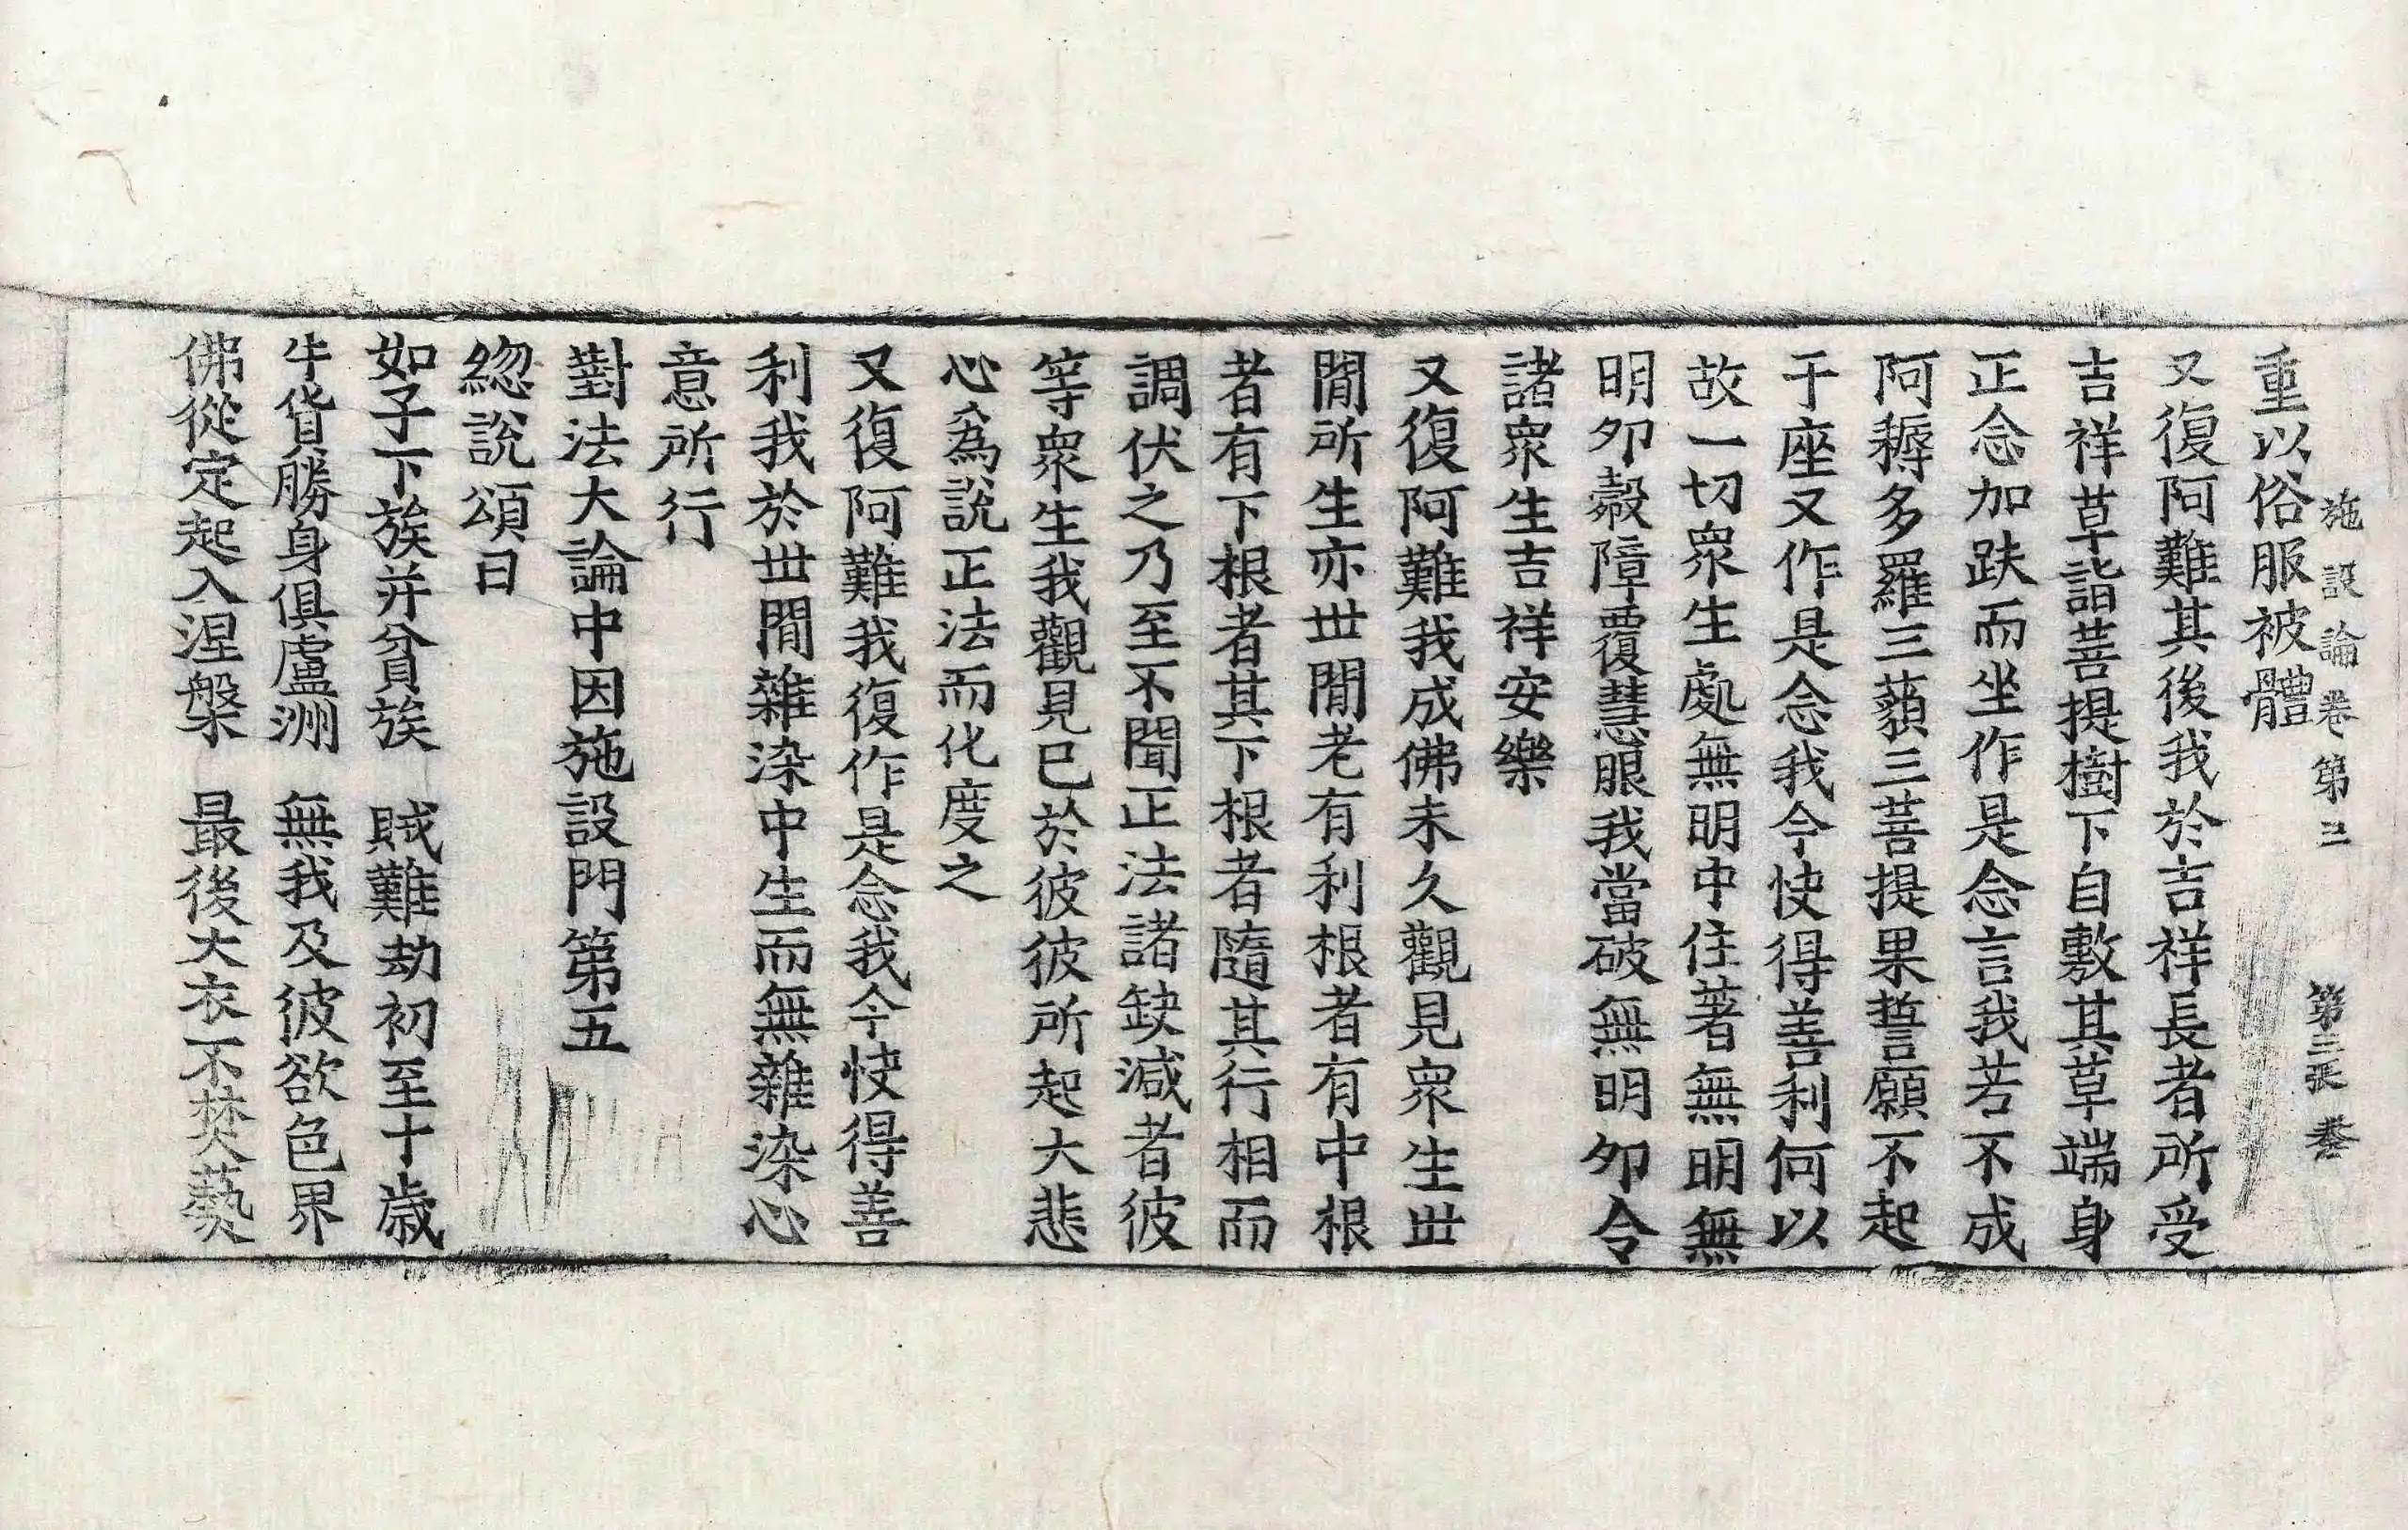 施設論卷第三 第三張 㤗
重以俗服被體
又復阿難其後我於吉祥長者所受
吉祥草詣菩提樹下自敷其草端身
正念加趺而坐作是念言我若不成
阿耨多羅三藐三菩提果誓願不起
于座又作是念我今快得善利何以
故一切衆生處無明中住著無明無
明夘㲉障覆慧眼我當破無明夘令
諸衆生吉祥安樂
又復阿難我成佛未久觀見衆生世
閒所生亦世閒老有利根者有中根
者有下根者其下根者隨其行相而
調伏之乃至不聞正法諸缺減者彼
等衆生我觀見已於彼彼所起大悲
心爲說正法而化度之
又復阿難我復作是念我今快得善
利我於世閒雜染中生而無雜染心
意所行
對法大論中因施設門第五
揔說頌曰
如子下族并貧族 賊難劫初至十歲
牛貨勝身俱盧洲 無我及彼欲色界
佛從定起入涅槃 最後大衣不焚爇